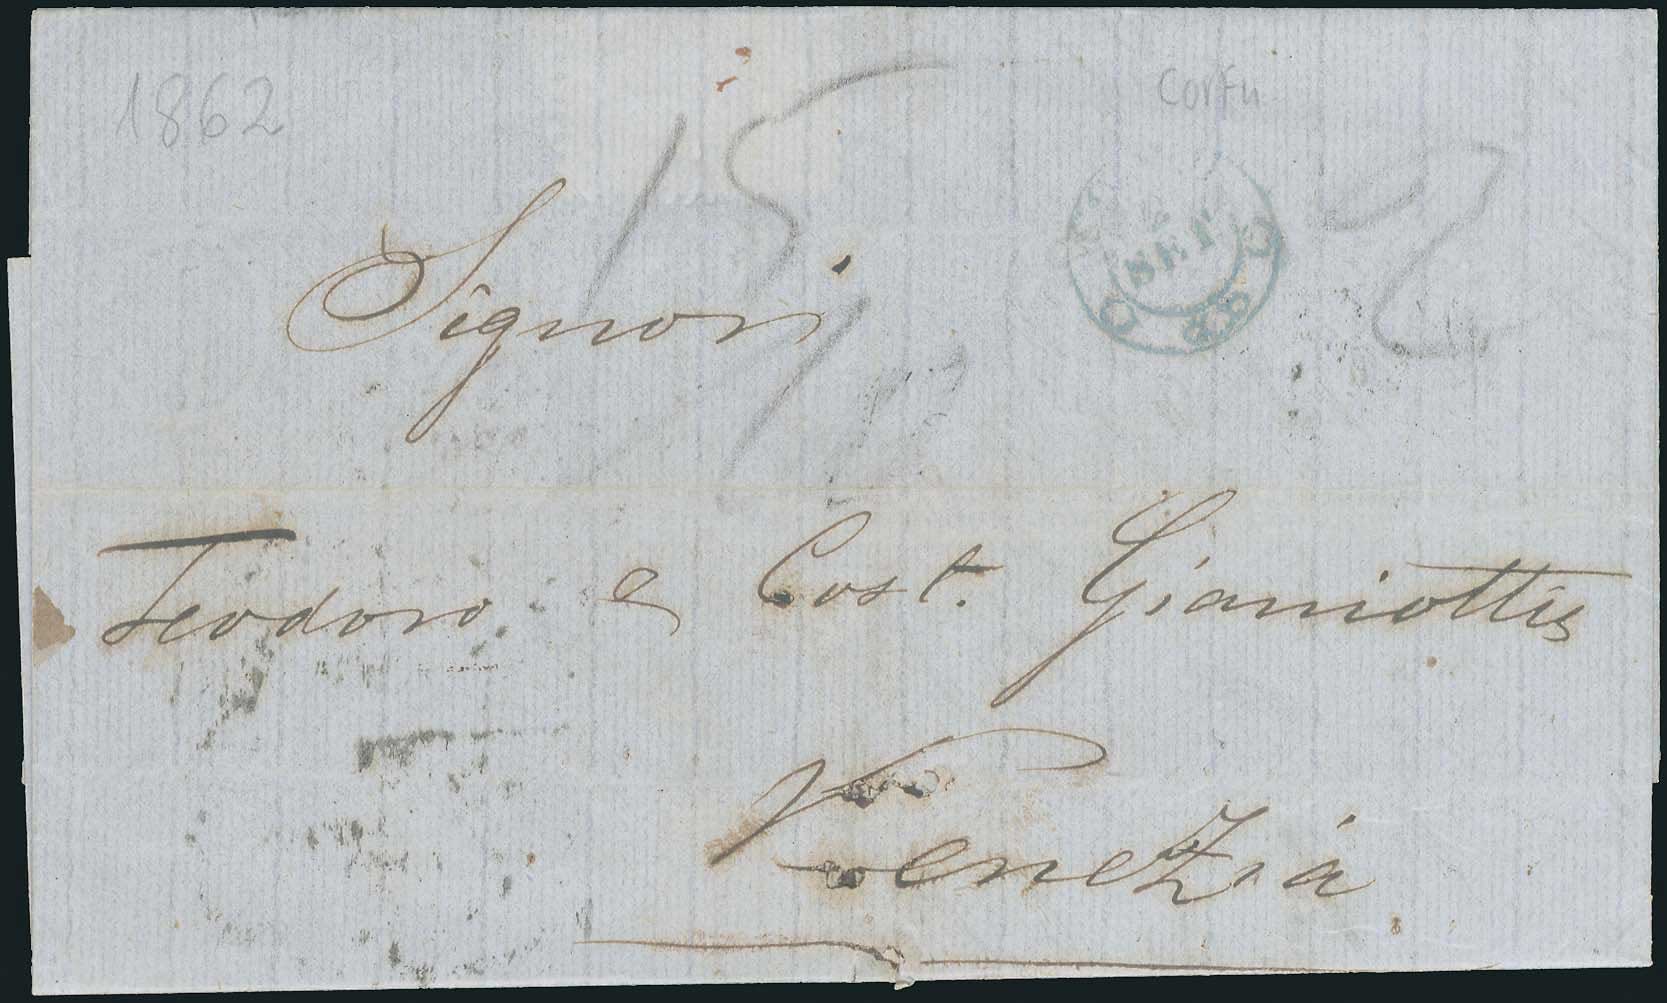 1862
Corfu
15
SET
Signori
Teodoro e Cost. Gianiottis
Venezia